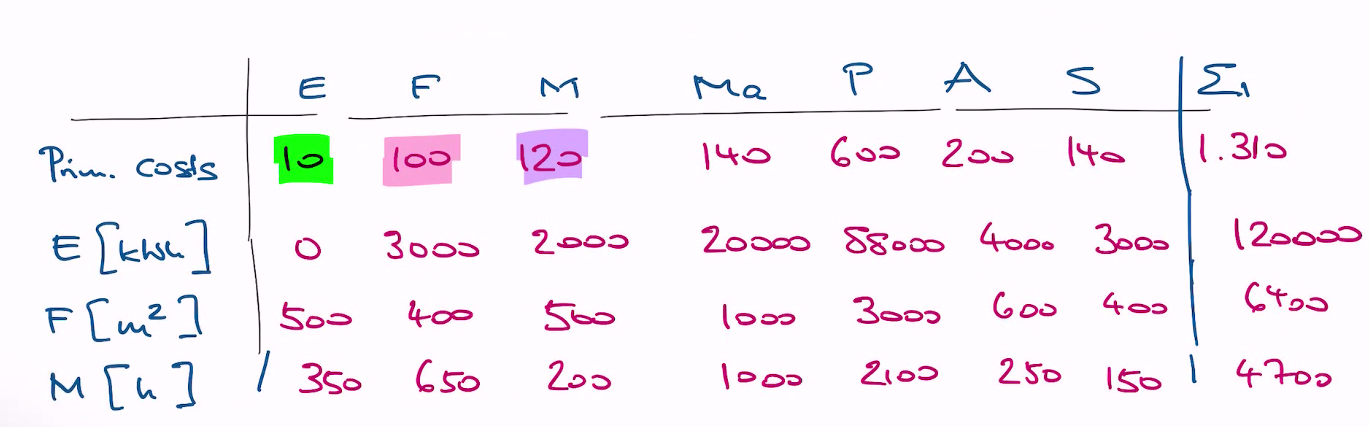 E F M Ma P A S Σ1
Prim. costs 10 100 120 140 600 200 140 1.310
E [kWh] 0 3000 2000 20000 88000 4000 3000 120000
F [m²] 500 400 500 1000 3000 600 400 6400
M [h] 350 650 200 1000 2100 250 150 4700